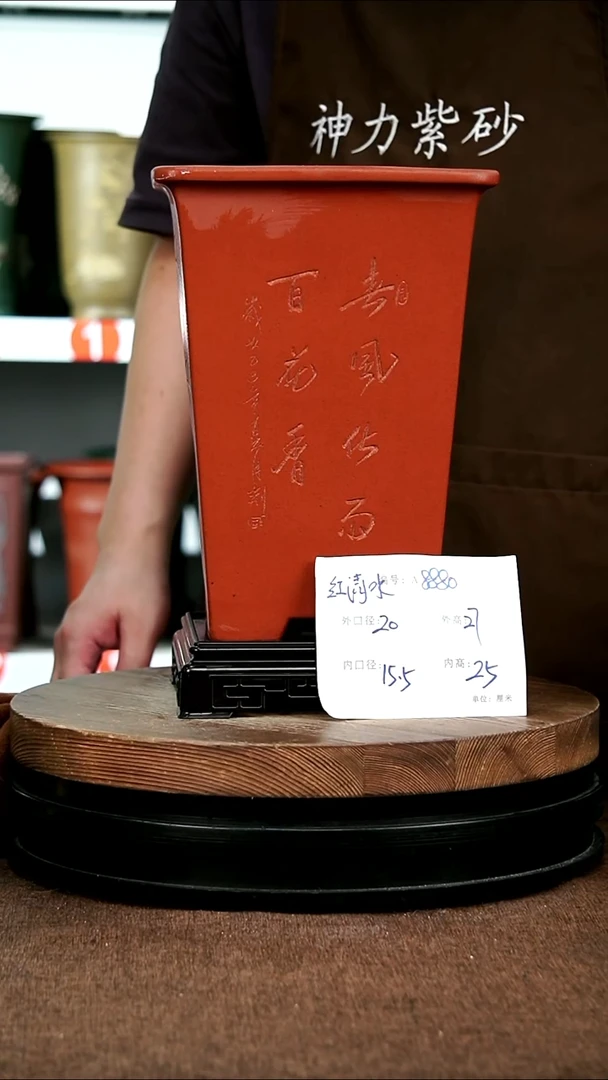 神力紫砂
春风化雨
百花香
1
红清水
编号: A
外口径: 20 外高: 27
内口径: 15.5 内高: 25
单位: 厘米